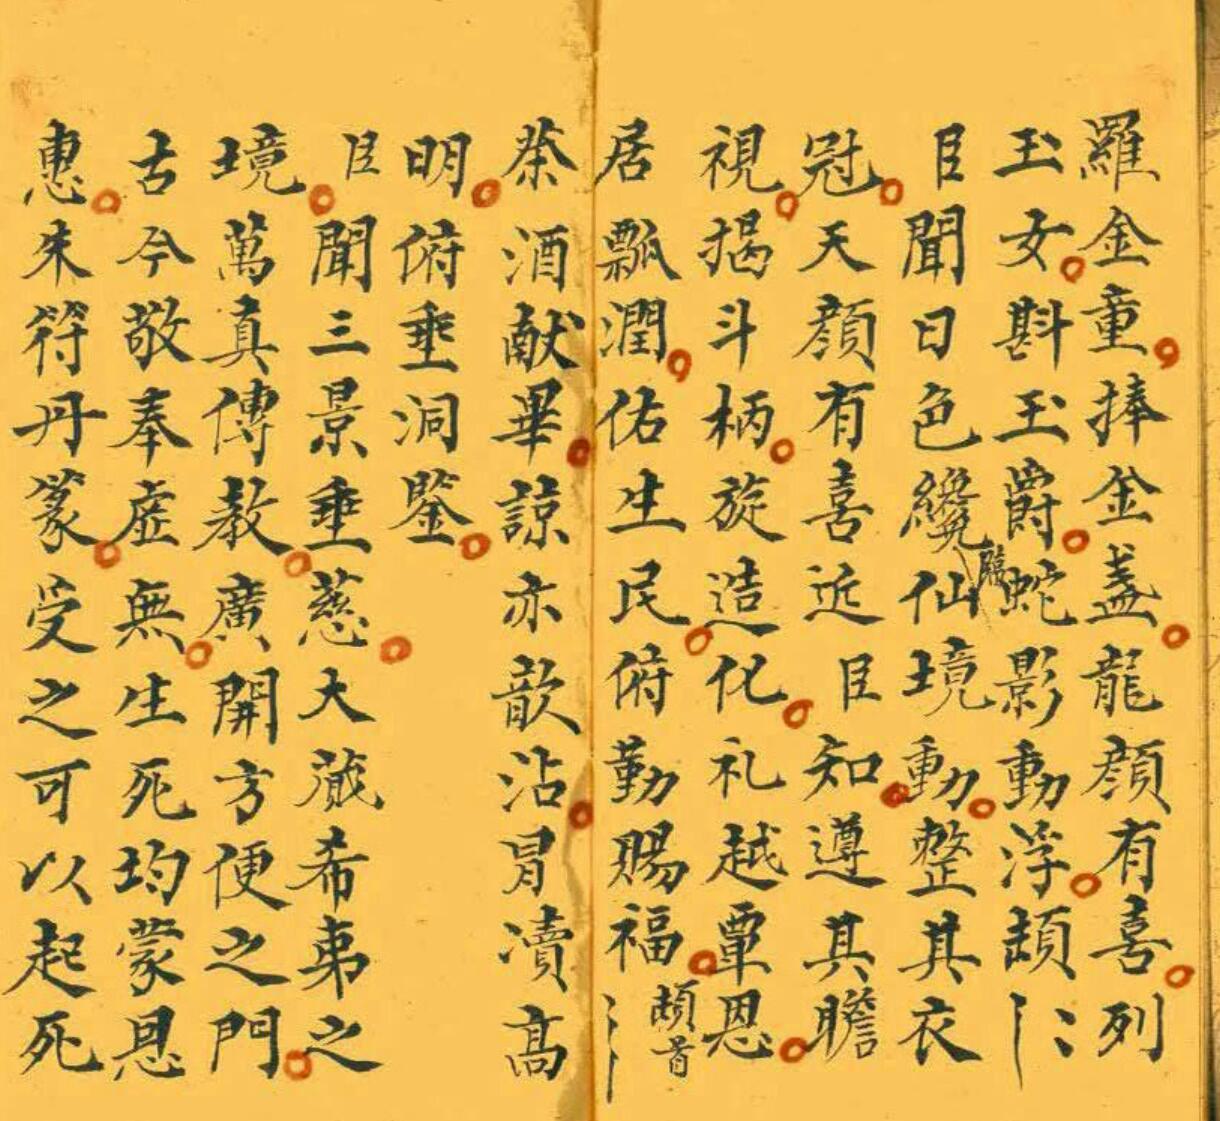 羅金童捧金盞龍顔有喜列
玉女斟玉爵蛇影動浮
臣聞日色纔臨仙境動整其衣
冠天顔有喜近臣知遵其瞻
視揭斗柄旋造化礼越覃恩
居瓢潤佑生民俯勤賜福首
茶酒献畢諒亦歆沾冒瀆高
明俯垂洞鑒
臣聞三景垂慈大蔵希弟之
境萬真傳教廣開方便之門
古今敬奉虚無生死均蒙恩
惠朱符丹篆受之可以起死